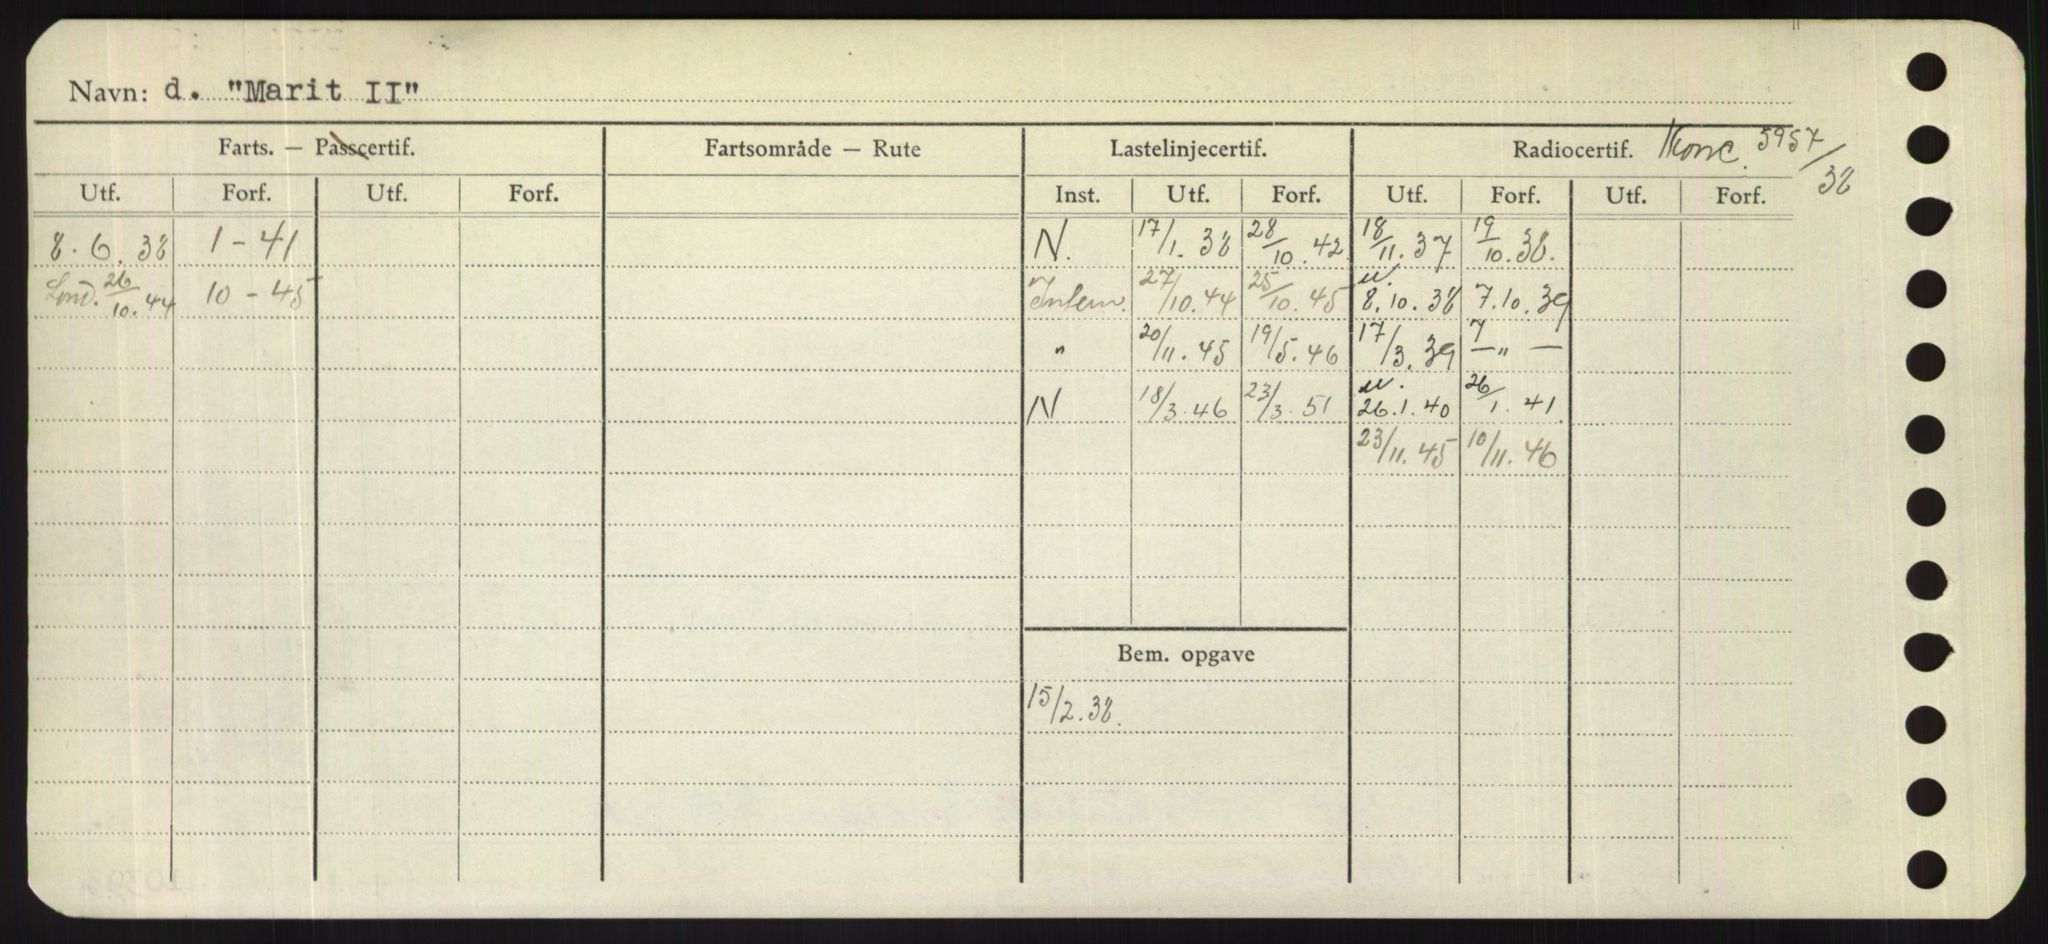 Navn: d. "Marit II"
Farts. — Passcertif. Fartsområde — Rute Lastelinjecertif. Radiocertif. Konc. 5957/38
Utf. Forf. Utf. Forf. Inst. Utf. Forf. Utf. Forf. Utf. Forf.
8.6.38 1-41 N. 17/1.38 28/10.42 18/11.37 19/10.38.
Lond. 26/10.44 10-45 Intern. 27/10.44 25/10.45 u. 8.10.38 7.10.39
" 20/11.45 19/5.46 17/3.39 — " —
N 18/3.46 23/3.51 u. 26.1.40 26/1.41
23/11.45 10/11.46
Bem. opgave
15/2.38.